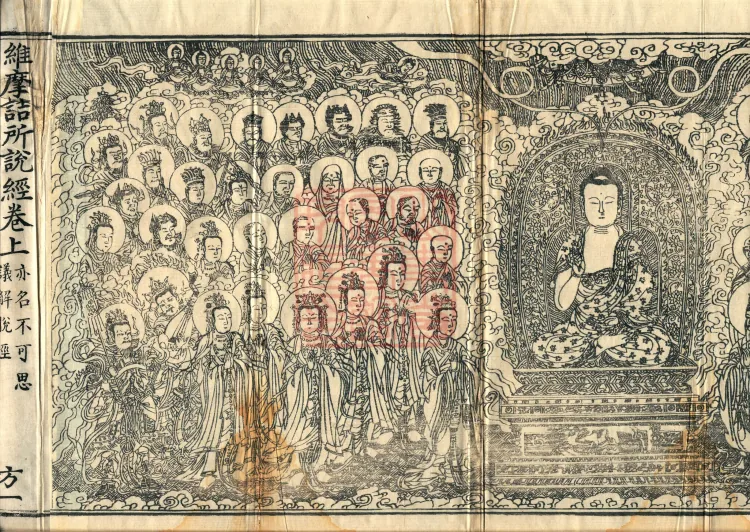 維摩詰所說經卷上
亦名不可思
議解脫經
方一